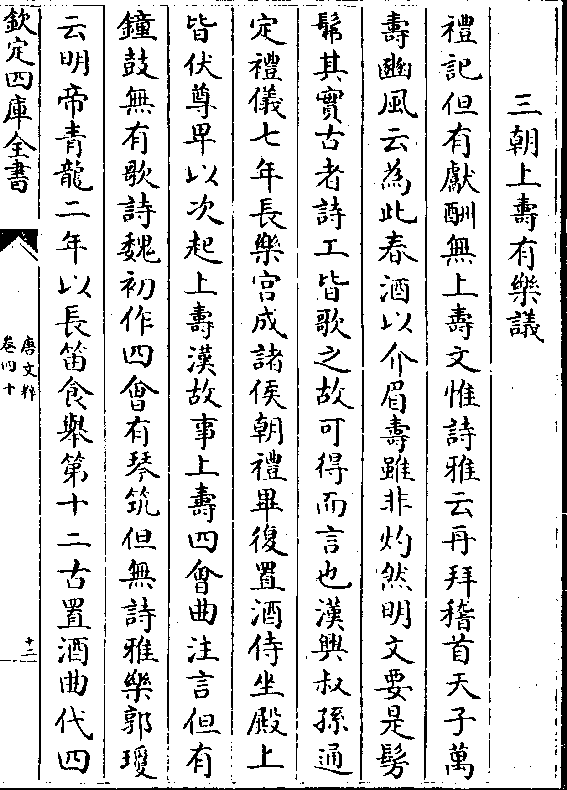 三朝上壽有樂議
禮記但有獻酬無上壽文惟詩雅云再拜稽首天子萬
壽豳風云為此春酒以介眉壽雖非灼然明文要是髣
髴其實古者詩工皆歌之故可得而言也漢興叔孫通
定禮儀七年長樂宮成諸侯朝禮畢復置酒侍坐殿上
皆伏尊卑以次起上壽漢故事上壽四會曲注言但有
鐘鼓無有歌詩魏初作四會有琴筑但無詩雅樂郭瓊
云明帝青龍二年以長笛食舉第十二古置酒曲代四
欽定四庫全書
唐文粹
卷四十
十二